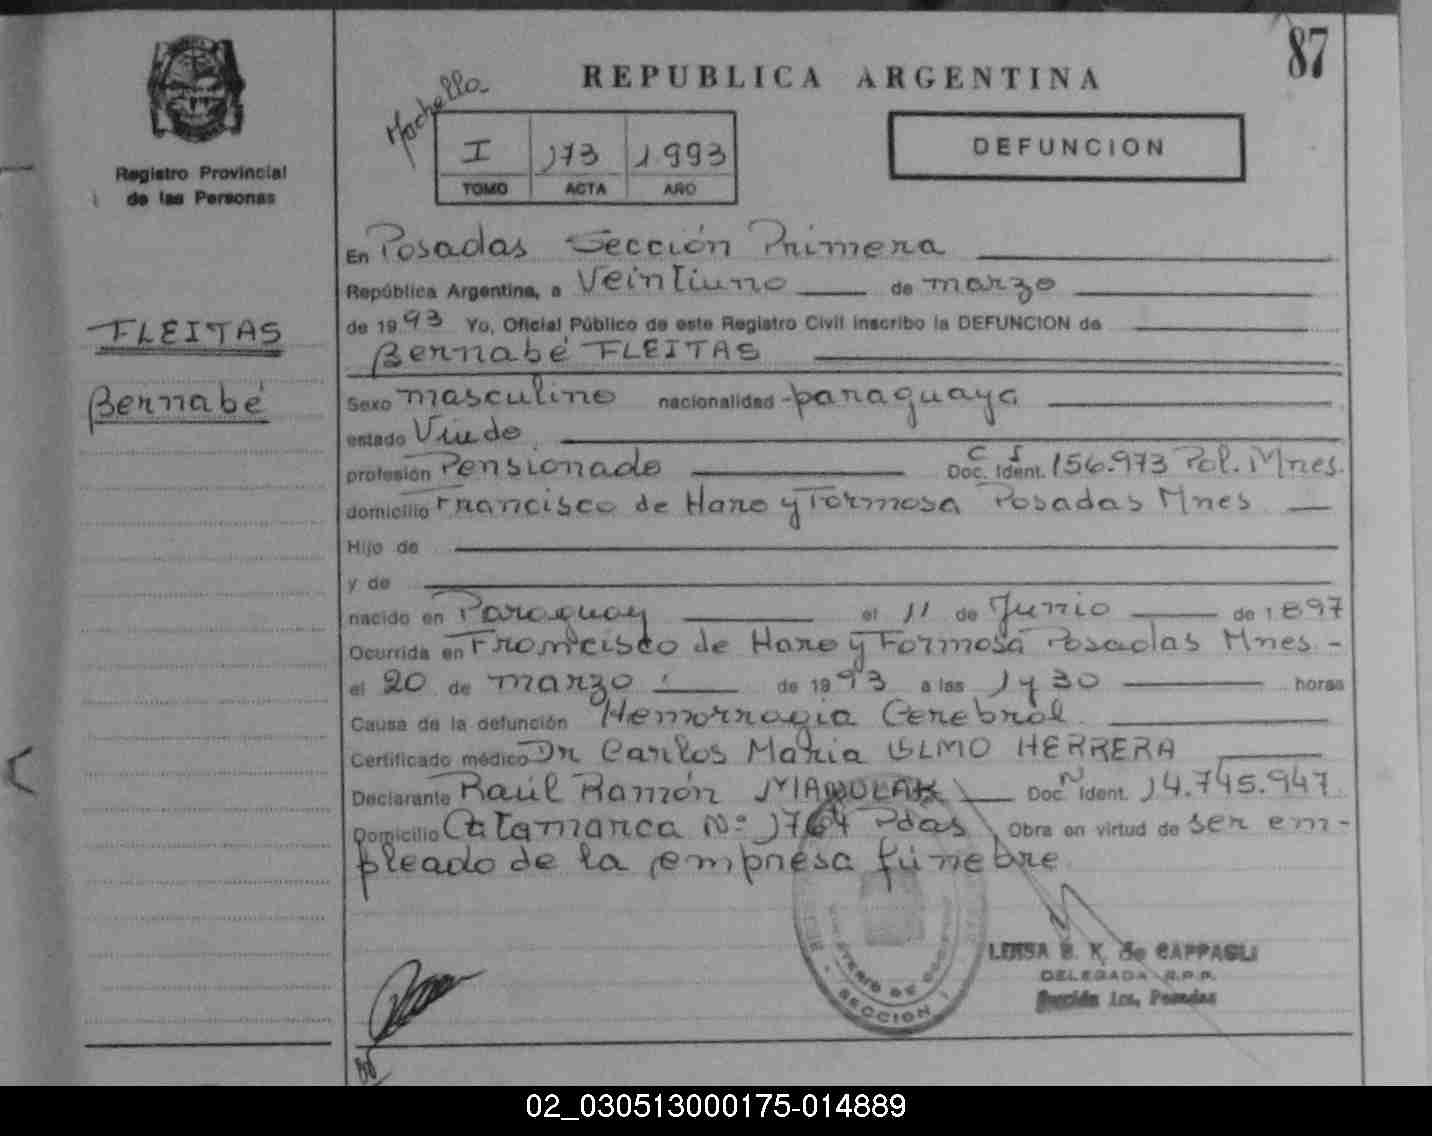 87
REPUBLICA ARGENTINA
Registro Provincial
de las Personas
I 173 1993
TOMO ACTA AÑO
DEFUNCION
FLEITAS
Bernabé
En Posadas Sección Primera
República Argentina, a Veintiuno de marzo
de 1993 Yo, Oficial Público de este Registro Civil inscribo la DEFUNCION de
Bernabé FLEITAS
Sexo masculino nacionalidad paraguaya
estado Viudo
profesión Pensionado Doc. Ident. C I 156.973 Pol. Mnes.
domicilio Francisco de Haro y Formosa Posadas Mnes
Hijo de
y de
nacido en Paraguay el 11 de Junio de 1897
Ocurrida en Francisco de Haro y Formosa Posadas Mnes -
el 20 de marzo de 1993 a las 1 y 30 horas
Causa de la defunción Hemorragia Cerebral
Certificado médico Dr Carlos Maria HERRERA
Declarante Raúl Ramón Doc. Ident. 14.745.947
Domicilio Catamarca Nº 1764 Pdas Obra en virtud de ser em-
pleado de la empresa fúnebre
MINISTERIO DE GOBIERNO
SECCION 1
B. K. de CAPPAGLI
DELEGADA R.P.P.
Sección 1ra, Posadas
02_030513000175-014889